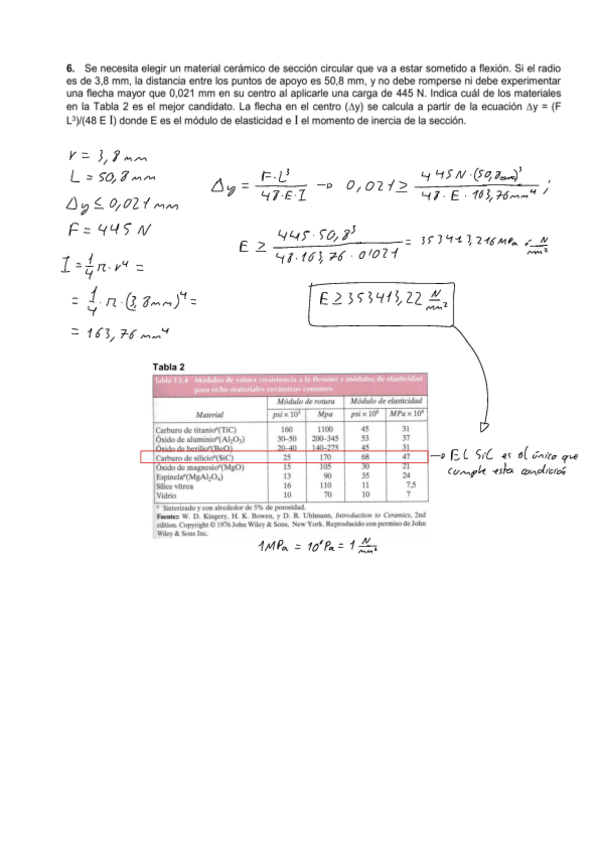 6. Se necesita elegir un material cerámico de sección circular que va a estar sometido a flexión. Si el radio
es de 3,8 mm, la distancia entre los puntos de apoyo es 50,8 mm, y no debe romperse ni debe experimentar
una flecha mayor que 0,021 mm en su centro al aplicarle una carga de 445 N. Indica cuál de los materiales
en la Tabla 2 es el mejor candidato. La flecha en el centro (Δy) se calcula a partir de la ecuación Δy = (F
L³)/(48 E I) donde E es el módulo de elasticidad e I el momento de inercia de la sección.
r = 3,8 mm
L = 50,8 mm
Δy ≤ 0,021 mm
F = 445 N
I = 1/4 π · r⁴ =
= 1/4 · π · (3,8mm)⁴ =
= 163,76 mm⁴
Δy = F·L³/48·E·I → 0,021 ≥ 445N·(50,8mm)³/48 · E · 163,76mm⁴ ;
E ≥ 445·50,8³/48·163,76·0'021 = 353413,216 MPa : N/mm²
E ≥ 353413,22 N/mm²
Tabla 2
Tabla 13.4 Módulos de rotura (resistencia a la flexión) y módulos de elasticidad
para ocho materiales cerámicos comunes
Módulo de rotura Módulo de elasticidad
Material psi × 10³ Mpa psi × 10⁶ MPa × 10⁴
Carburo de titanioª(TiC) 160 1100 45 31
Óxido de aluminioª(Al₂O₃) 30-50 200-345 53 37
Óxido de berilioª(BeO) 20-40 140-275 45 31
Carburo de silicioª(SiC) 25 170 68 47
Óxido de magnesioª(MgO) 15 105 30 21
Espinelaª(MgAl₂O₄) 13 90 35 24
Sílice vítrea 16 110 11 7,5
Vidrio 10 70 10 7
ª Sinterizado y con alrededor de 5% de porosidad.
Fuente: W. D. Kingery, H. K. Bowen, y D. R. Uhlmann, Introduction to Ceramics, 2nd
edition. Copyright © 1976 John Wiley & Sons, New York. Reproducido con permiso de John
Wiley & Sons Inc.
→ EL SiC es el único que
cumple esta condición
1MPa = 10⁶Pa = 1 N/mm²